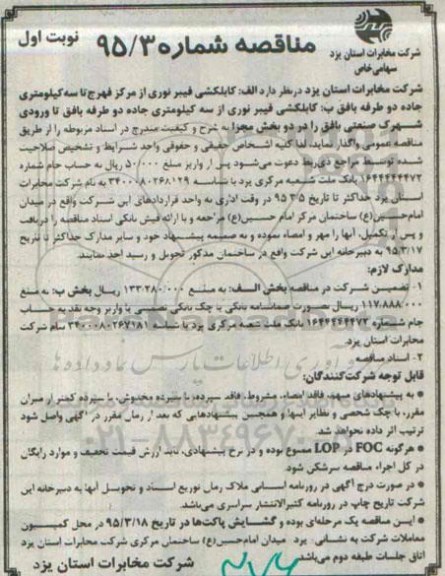 نوبت اول
مناقصه شماره ۹۵/۳
شرکت مخابرات استان یزد
سهامی خاص
شرکت مخابرات استان یزد درنظر دارد الف: کابلکشی فیبر نوری از مرکز فهرج تا سه کیلومتری
جاده دو طرفه بافق ب: کابلکشی فیبر نوری از سه کیلومتری جاده دو طرفه بافق تا ورودی
شهرک صنعتی بافق را در دو بخش مجزا به شرح و کیفیت مندرج در اسناد مربوطه را از طریق
مناقصه عمومی واگذار نماید، لذا کلیه اشخاص حقیقی و حقوقی واجد شرایط و تشخیص صلاحیت
شده توسط مراجع ذیربط دعوت می‌شود پس از واریز مبلغ ۵۰/۰۰۰ ریال به حساب جام شماره
۱۶۴۴۴۴۴۴۷۲ بانک ملت شعبه مرکزی یزد با شناسه ۳۴۰۰۰۸۰۲۶۸۱۲۹ به نام شرکت مخابرات
استان یزد حداکثر تا تاریخ ۹۵/۳/۵ در وقت اداری به واحد قراردادهای این شرکت واقع در میدان
امام حسین(ع) ساختمان مرکز امام حسین(ع) مراجعه و با ارائه فیش بانکی اسناد مناقصه را دریافت
و پس از تکمیل، آنها را مهر و امضاء نموده و به ضمیمه پیشنهاد خود و سایر مدارک حداکثر تا تاریخ
۹۵/۳/۱۷ به دبیرخانه این شرکت واقع در ساختمان مذکور تحویل و رسید اخذ نمایند.
مدارک لازم:
۱- تضمین شرکت در مناقصه بخش الف: به مبلغ ۱۳۳/۲۸۰/۰۰۰ ریال بخش ب: به مبلغ
۱۱۷/۸۸۸/۰۰۰ ریال بصورت ضمانتنامه بانکی یا چک بانکی تضمینی یا واریز وجه نقد به حساب
جام شماره ۱۶۴۴۴۴۴۴۷۲ بانک ملت شعبه مرکزی یزد با شناسه ۳۴۰۰۰۸۰۲۶۷۱۸۱ بنام شرکت
مخابرات استان یزد.
۲- اسناد مناقصه
قابل توجه شرکت‌کنندگان:
● به پیشنهادهای مبهم، فاقد امضاء، مشروط، فاقد سپرده، با سپرده مخدوش، با سپرده کمتر از میزان
مقرر، با چک شخصی و نظایر آنها و همچنین پیشنهادهایی که بعد از زمان مقرر در آگهی واصل شود
ترتیب اثر داده نخواهد شد.
● هرگونه FOC در LOP ممنوع بوده و در نرخ پیشنهادی، باید ارزش قیمت تخفیف و موارد رایگان
در کل اجزاء مناقصه سرشکن شود.
● در صورت درج آگهی در روزنامه استانی ملاک زمان توزیع اسناد و تحویل آنها به دبیرخانه این
شرکت تاریخ چاپ در روزنامه کثیرالانتشار سراسری می‌باشد.
● این مناقصه یک مرحله‌ای بوده و گشایش پاکت‌ها در تاریخ ۹۵/۳/۱۸ در محل کمیسیون
معاملات شرکت به نشانی: یزد میدان امام حسین(ع) ساختمان مرکزی شرکت مخابرات استان یزد
اتاق جلسات طبقه دوم می‌باشد.
شرکت مخابرات استان یزد
فرآوری اطلاعات پارس نماد داده‌ها
۰۲۱-۸۸۳۴۹۶۷۰